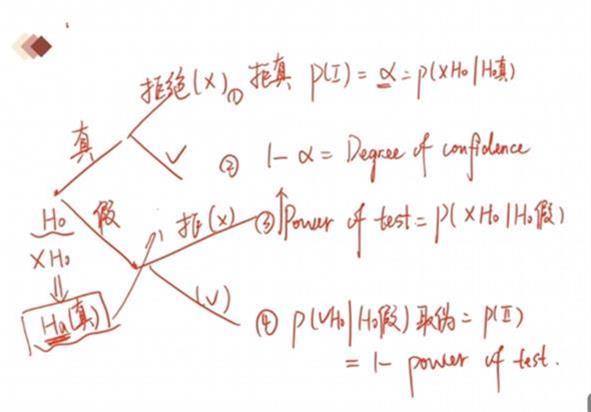 拒绝(X) ① 拒真 P(I) = α = P(XH₀|H₀真)
真
✓ ② 1-α = Degree of confidence
H₀ 假 拒(X) ③ ↑Power of test = P(XH₀|H₀假)
XH₀
⇓
Ha(真)
(✓) ④ P(✓H₀|H₀假) 取伪 = P(II)
= 1- power of test.